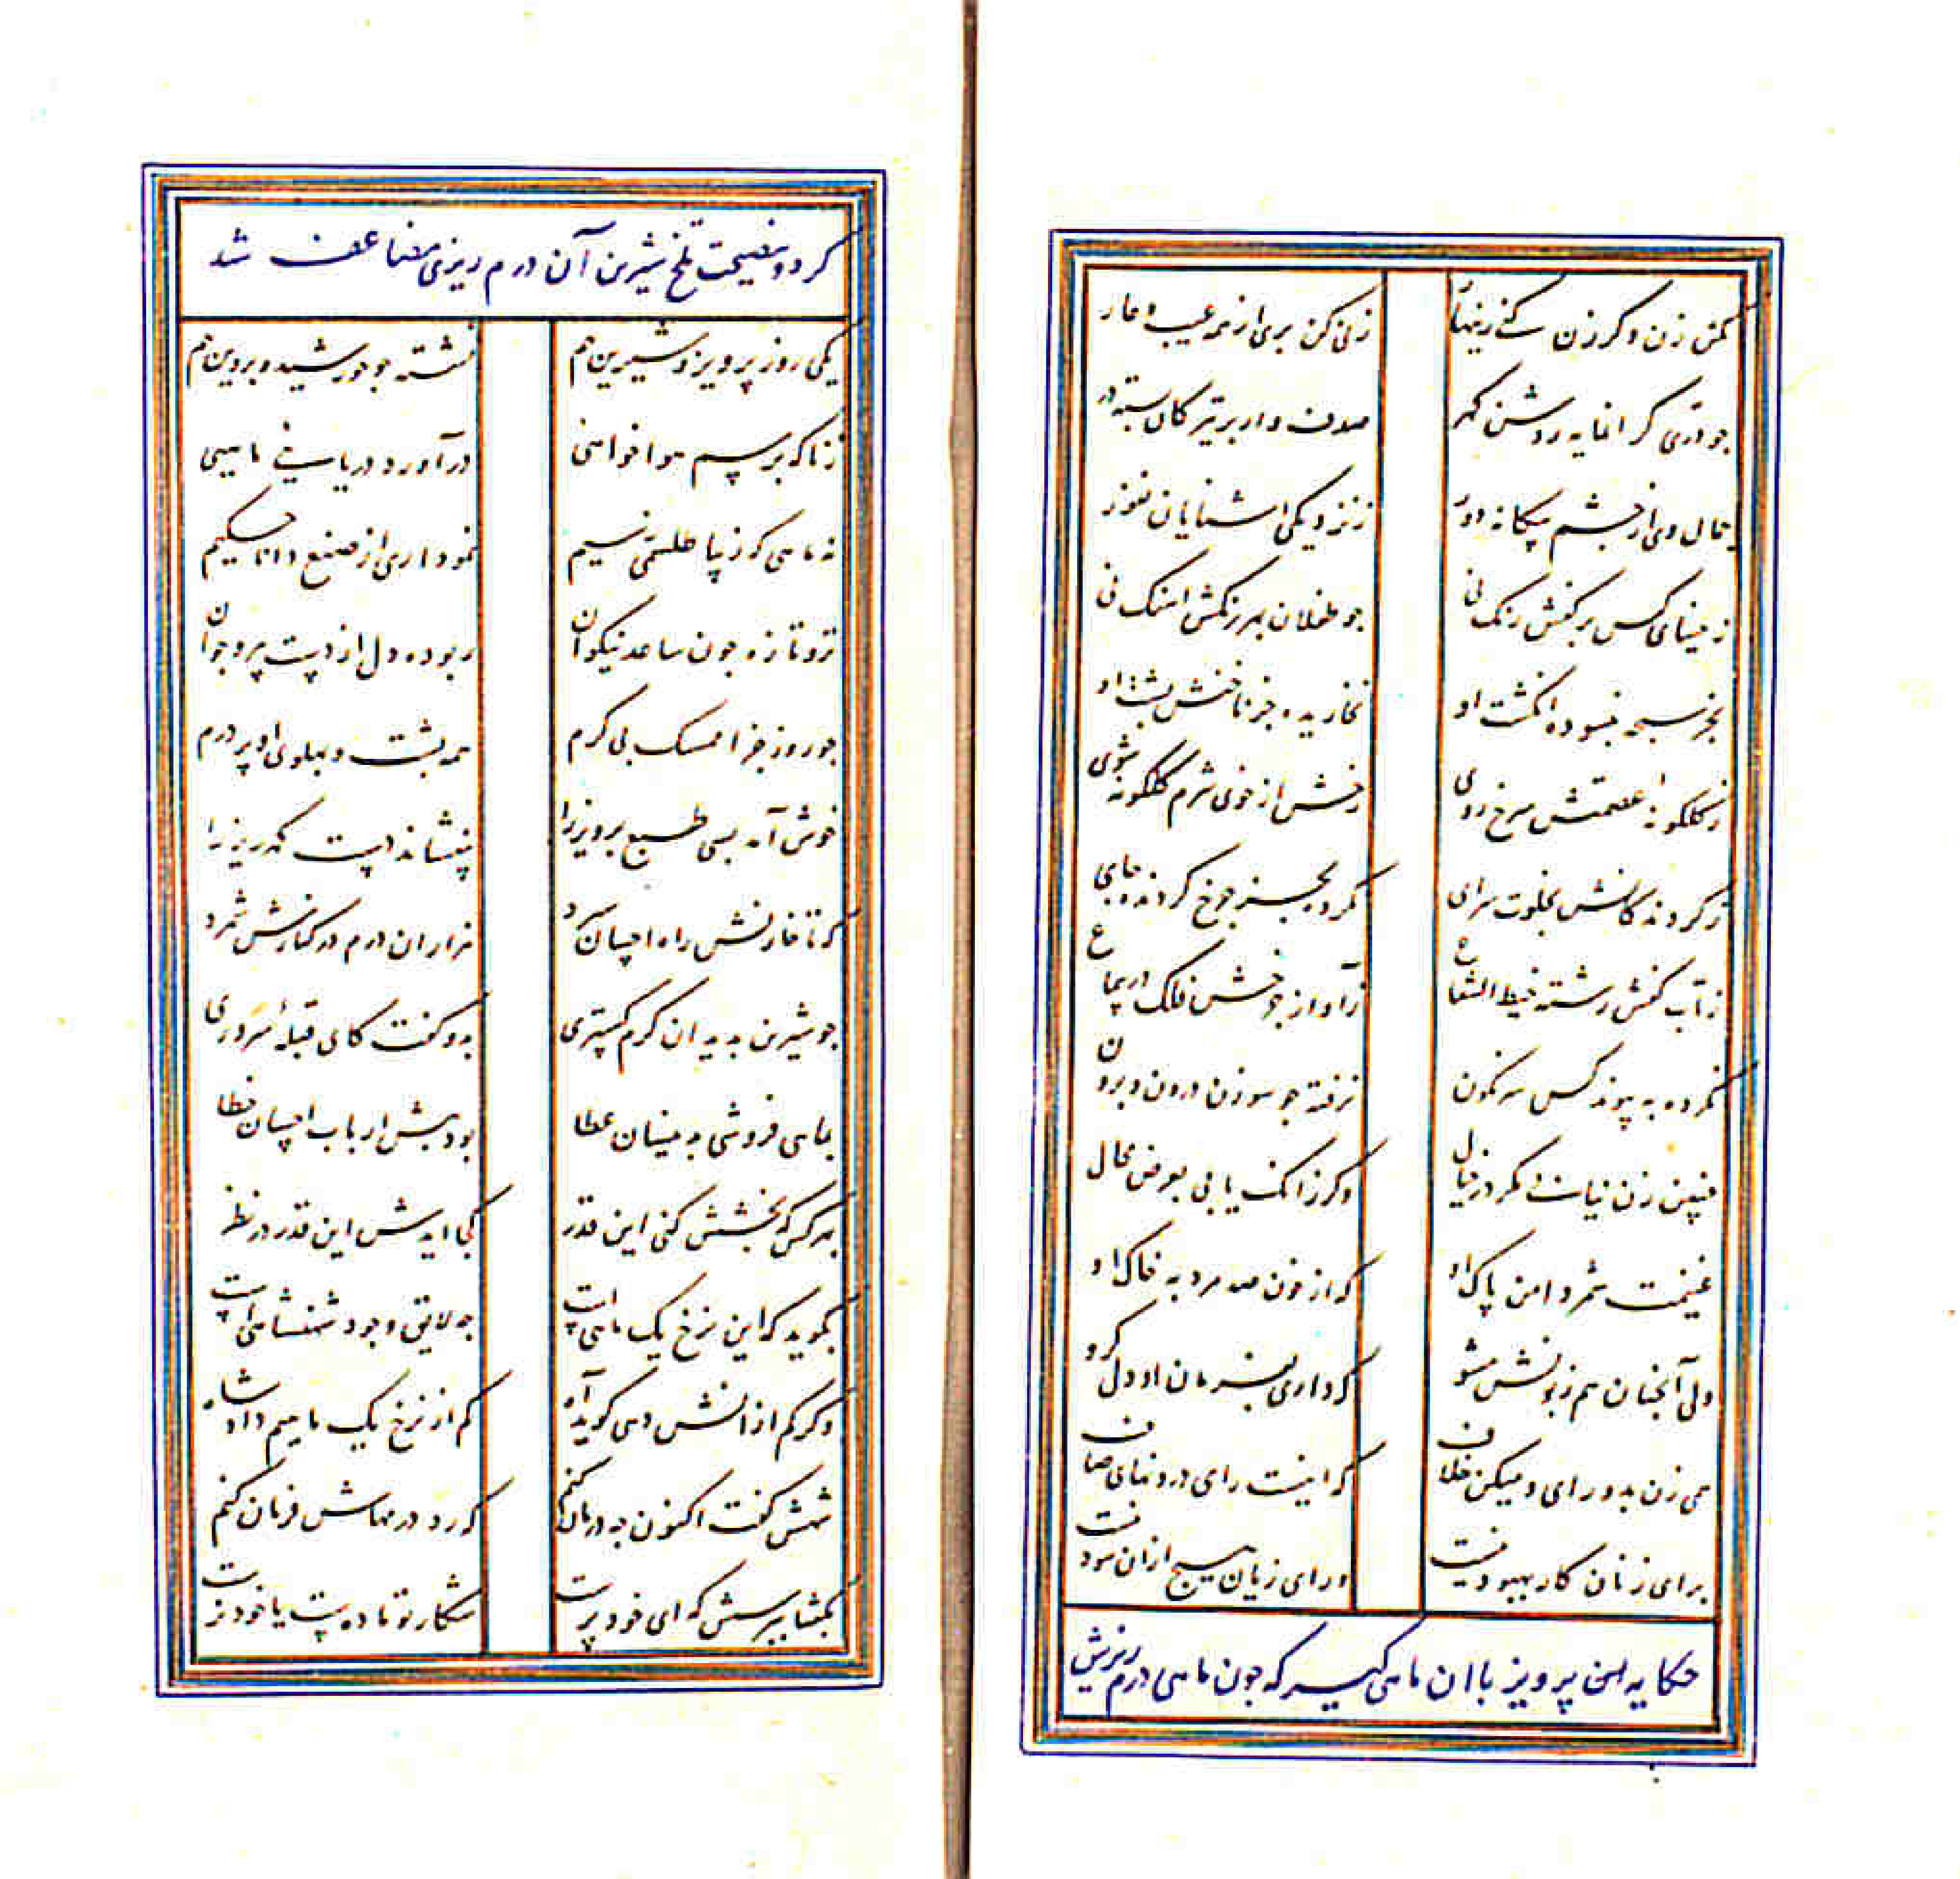 مکن زن وگر زن کنے زینهار زنی کن بری از همه عیب و عار
چو دری گرانمایه روشن گهر صدف وار بر تیرکان بسته در
جمال وی از چشم بیگانه دور ز نزدیکی اشنایان نفور
ز مینای کس بر کفش رنگ نی چو طفلان بهر رنگش اهنگ نی
بجز سبحه نبسوده انکشت او نخاریده جز ناخنش پشت او
ز گلگونهٔ عصمتش سرخ روی رخش از خوی شرم گلگونه شوی
ز گردندگانش بخلوت سرای نگردد بجز چرخ گردنده جای
ز تاب کفش رشته خیط الشعاع ز آواز چرخش فلک در سماع
نکرده به پیوند کس سر نگون نرفته چو سوزن درون و برون
چنین زن نیابے مگر در خیال وگر زانک یابی بعرض محال
غنیمت شمر دامن پاک او که از خون صد مرد به خاک او
ولی آنچنان هم زبونش مشو که داری بفرمان او دل گرو
می زن بدو رای و میکن خلاف که اینست رای درونهای صاف
برای زنان کار بهبود نیست ورای زیان هیچ ازان سود نیست
حکایه اسن پرویز با ان ماهی گیر که چون ماهی درم ریزش
کرد و بنصیحت تلخ شیرین آن درم ریزی مضاعف شد
یکی روز پرویز و شیرین بهم نشسته چو خورشید و پروین بهم
ز ناگه برسم هوا خواهئی در آورد دریائے ماهیی
نه ماهی که زیبا طلسمی ز سیم نموداری از صنع دانا حکیم
تر و تازه چون ساعد نیکوان ربوده دل از دست پیر و جوان
چو روز جزا ممسک بی کرم همه پشت و پهلوی او پر درم
خوش آمد بسی طبع پرویز را بیفشاند دست گهرریز را
هزاران درم در کنارش شمرد
چو شیرین بدید ان کرم گستری بدو گفت کای قبلهٔ سروری
بماهی فروشی بدینسان عطا بود پیش ارباب احسان خطا
بهر کس که بخشش کنی این قدر کجا ایدش این قدر در نظر
بگوید که این نرخ یک ماهی است چه لایق وجود شهنشاهی است
وگر کم از انش دهی گوید آه کم از نرخ یک ماهیم داد شاه
شهش گفت اکنون چه درمان کنم که رد درمهاش فرمان کنم
بگفتا بپرسش که ای خود پرست شکار تو ماده ست یا خود نرست